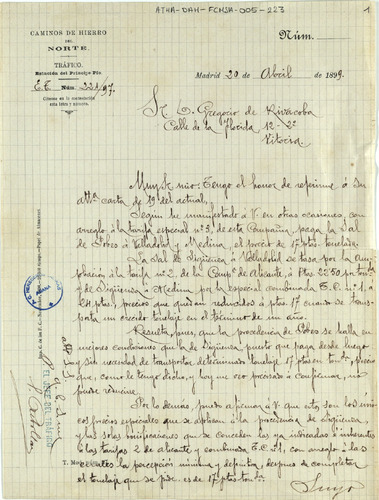 ATHA-DAH-FCHSA-005-223
1
CAMINOS DE HIERRO
DEL
NORTE.
TRÁFICO.
Estación del Príncipe Pío
Núm.
Cítense en la contestación
esta letra y número.
Núm.
Madrid 20 de Abril de 1899.
Sr. D. Gregorio de Rivacoba
Calle de la Florida
12-2º
Vitoria
Muy Sr. mio: Tengo el honor de referirme á su
atta carta de 19 del actual.
Segun he manifestado á V. en otras ocasiones, con
arreglo á la tarifa especial nº 3, de esta Compañia, paga la Sal
de Poves á Valladolid y Medina, el precio de 17 ptas tonelada.
La Sal de Sigüenza á Valladolid se tasa por la am-
pliación á la tarifa nº 2 de la Compª de Alicante, á Ptas 22'50 por tonª
y de Sigüenza á Medina por la especial combinada E.C. nº 1, á
24 ptas, precios que quedan reducidos á ptas 17 cuando se trans-
porta un crecido tonelaje en el término de un año.
Resulta pues, que la procedencia de Poves se halla en
mejores condiciones que la de Sigüenza puesto que paga desde luego
y sin necesidad de transportar determinado tonelaje 17 ptas en tonª precio
que, como le tengo dicho, y hoy me veo precisado á confirmar, no
puede reducirse.
Por lo demas, puedo afirmar á V. que estos son los úni-
cos precios especiales que se aplican á la procedencia de Sigüenza,
y las solas bonificaciones que se conceden las ya indicadas é inherentes
á las tarifas 2 de Alicante y combinada E.C. nº 1, con arreglo á las
cuales la percepción mínima y definitiva, despues de completar
el tonelaje que se pide, es de 17 ptas tonª
EL JEFE DEL TRÁFICO